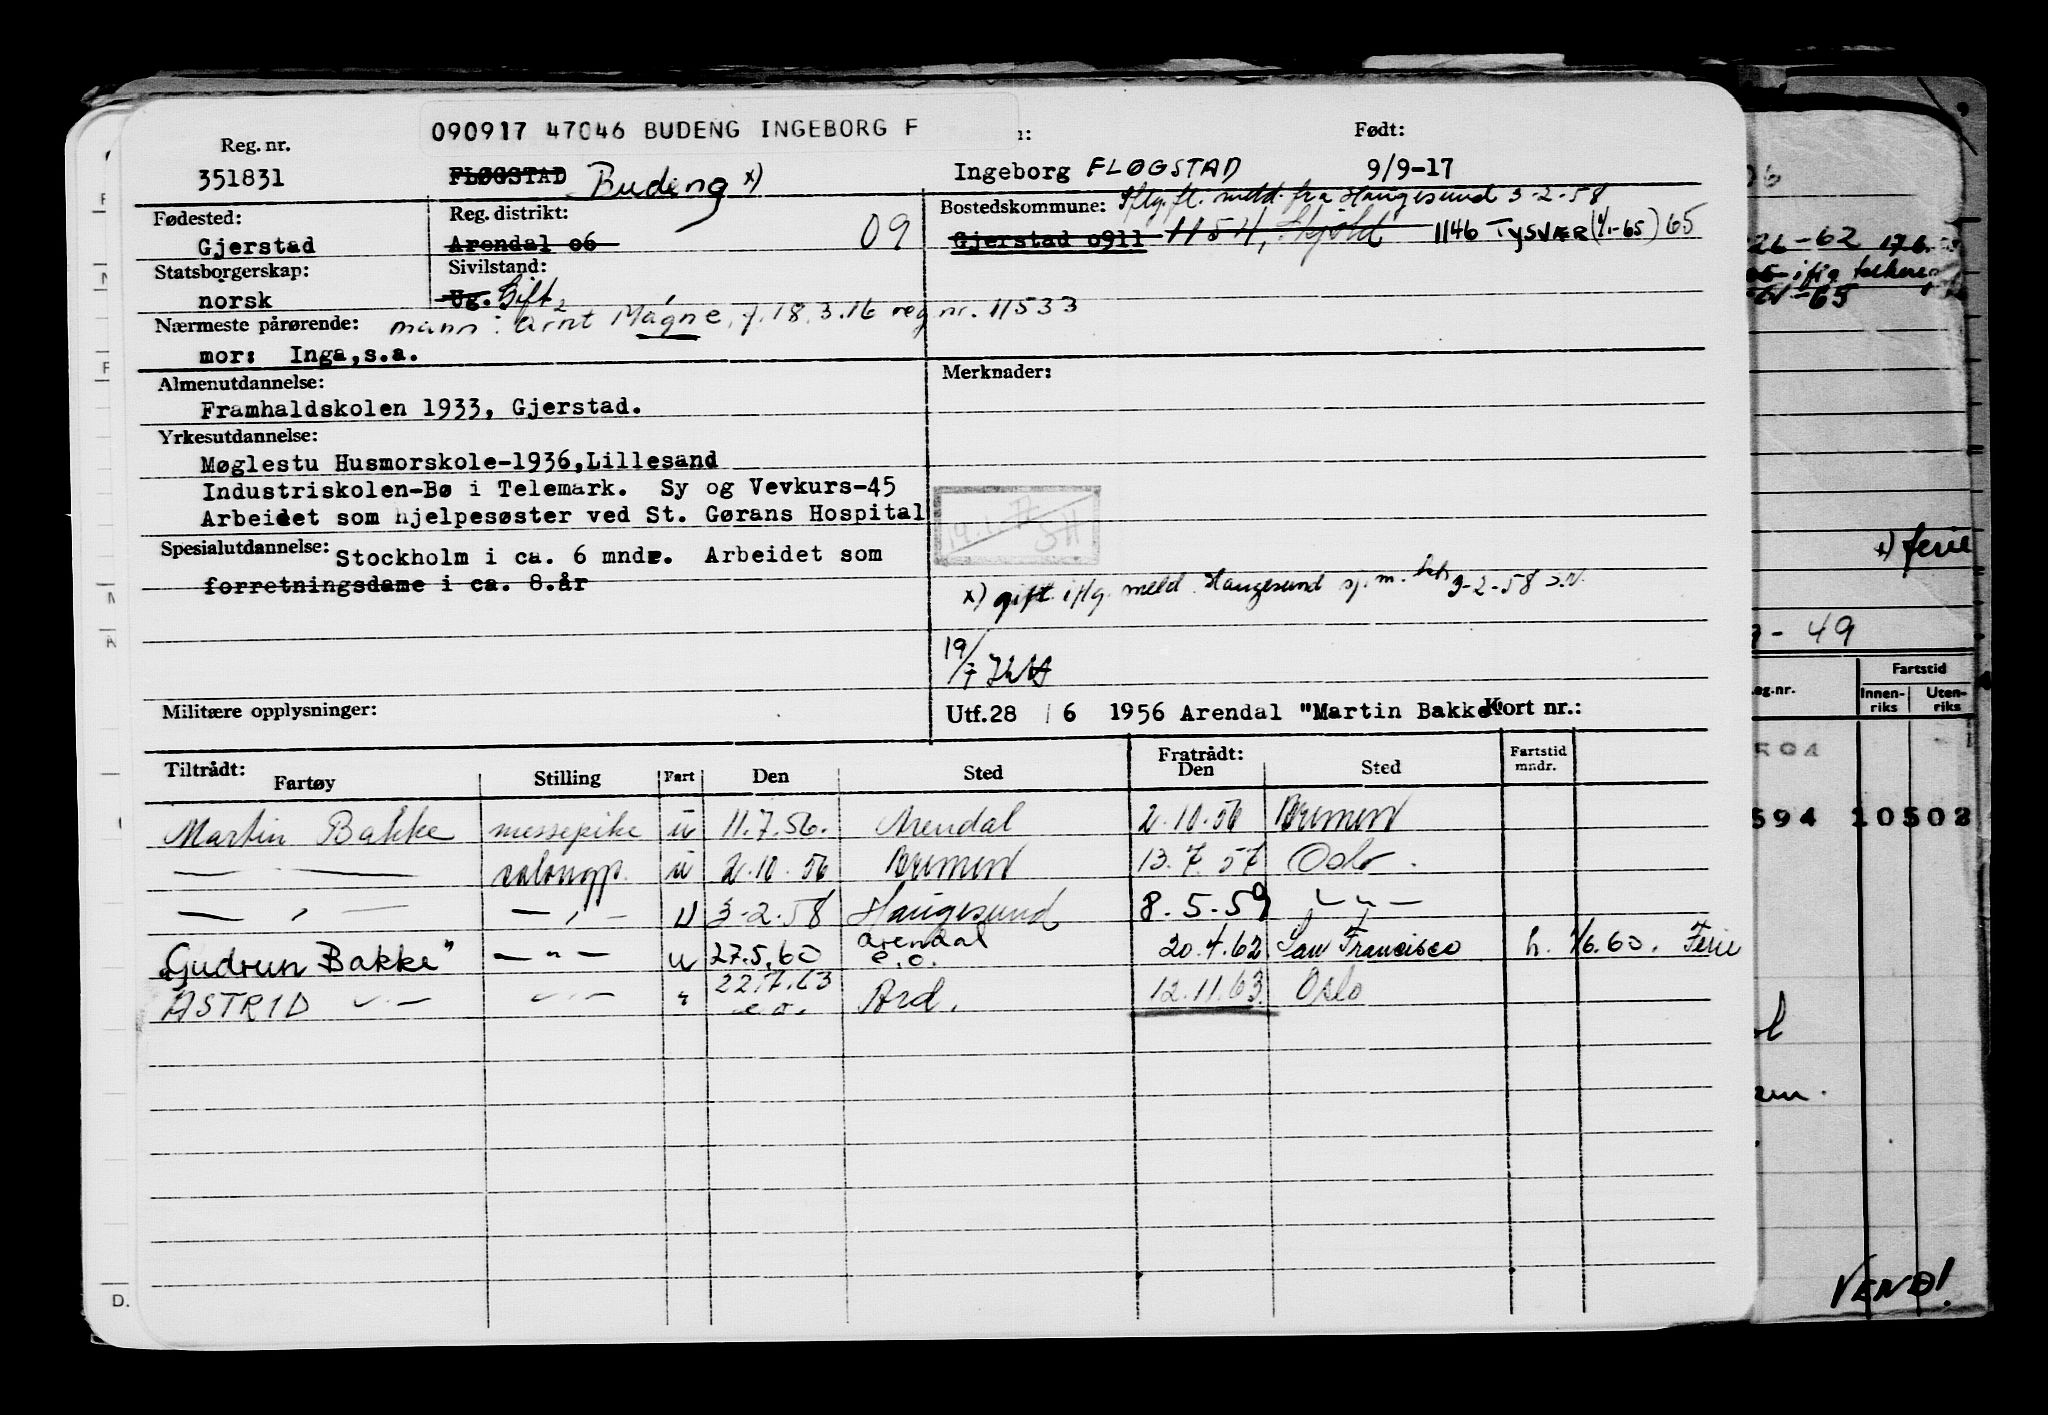 090917 47046 BUDENG INGEBORG F
Reg. nr. Født:
351831 FLØGSTAD Budeng x) Ingeborg FLØGSTAD 9/9-17
Fødested: Reg. distrikt: Bostedskommune: iflg. fl. meld. fra Haugesund 3-2-58
Gjerstad Arendal 06 09 Gjerstad 0911 1154, Skjold 1146 TYSVÆR (1/1-65) 65
Statsborgerskap: Sivilstand:
norsk Ug. Gift
Nærmeste pårørende: mann: Arnt Magne, f. 18.3.16 reg nr. 11533
mor: Inga, s.a.
Almenutdannelse: Merknader:
Framhaldskolen 1933, Gjerstad.
Yrkesutdannelse:
Møglestu Husmorskole-1936, Lillesand
Industriskolen-Bø i Telemark. Sy og Vevkurs-45
Arbeidet som hjelpesøster ved St. Gørans Hospital
Spesialutdannelse: Stockholm i ca. 6 mndr. Arbeidet som
forretningsdame i ca. 8.år
x) gift iflg. meld. Haugesund sj.m.ktr 3-2-58
19/7
Militære opplysninger: Utf. 28 / 6 1956 Arendal "Martin Bakke" Kort nr.:
Tiltrådt: Fratrådt: Fartstid
Fartøy Stilling Fart Den Sted Den Sted mndr.
Martin Bakke messepike u 11.7.56. Arendal 2.10.56 Bremen
— — salongp. u 2.10.56 Bremen 13.7.57 Oslo.
— , — — , — U 3-2.58 Haugesund 8.5.59 — " —
"Gudrun Bakke" — " — u 27.5.60 Arendal e.o. 20.4.62 San Francisco h. 1/6.60. Ferie
ASTRID — " — — " — " 22.7.63 e.o. Ard. 12.11.63. Oslo
26-62
iflg
-65
x) ferie
- 49
Fartstid
eg.nr. Innen-riks Uten-riks
594
594 10502
VEND!
D.